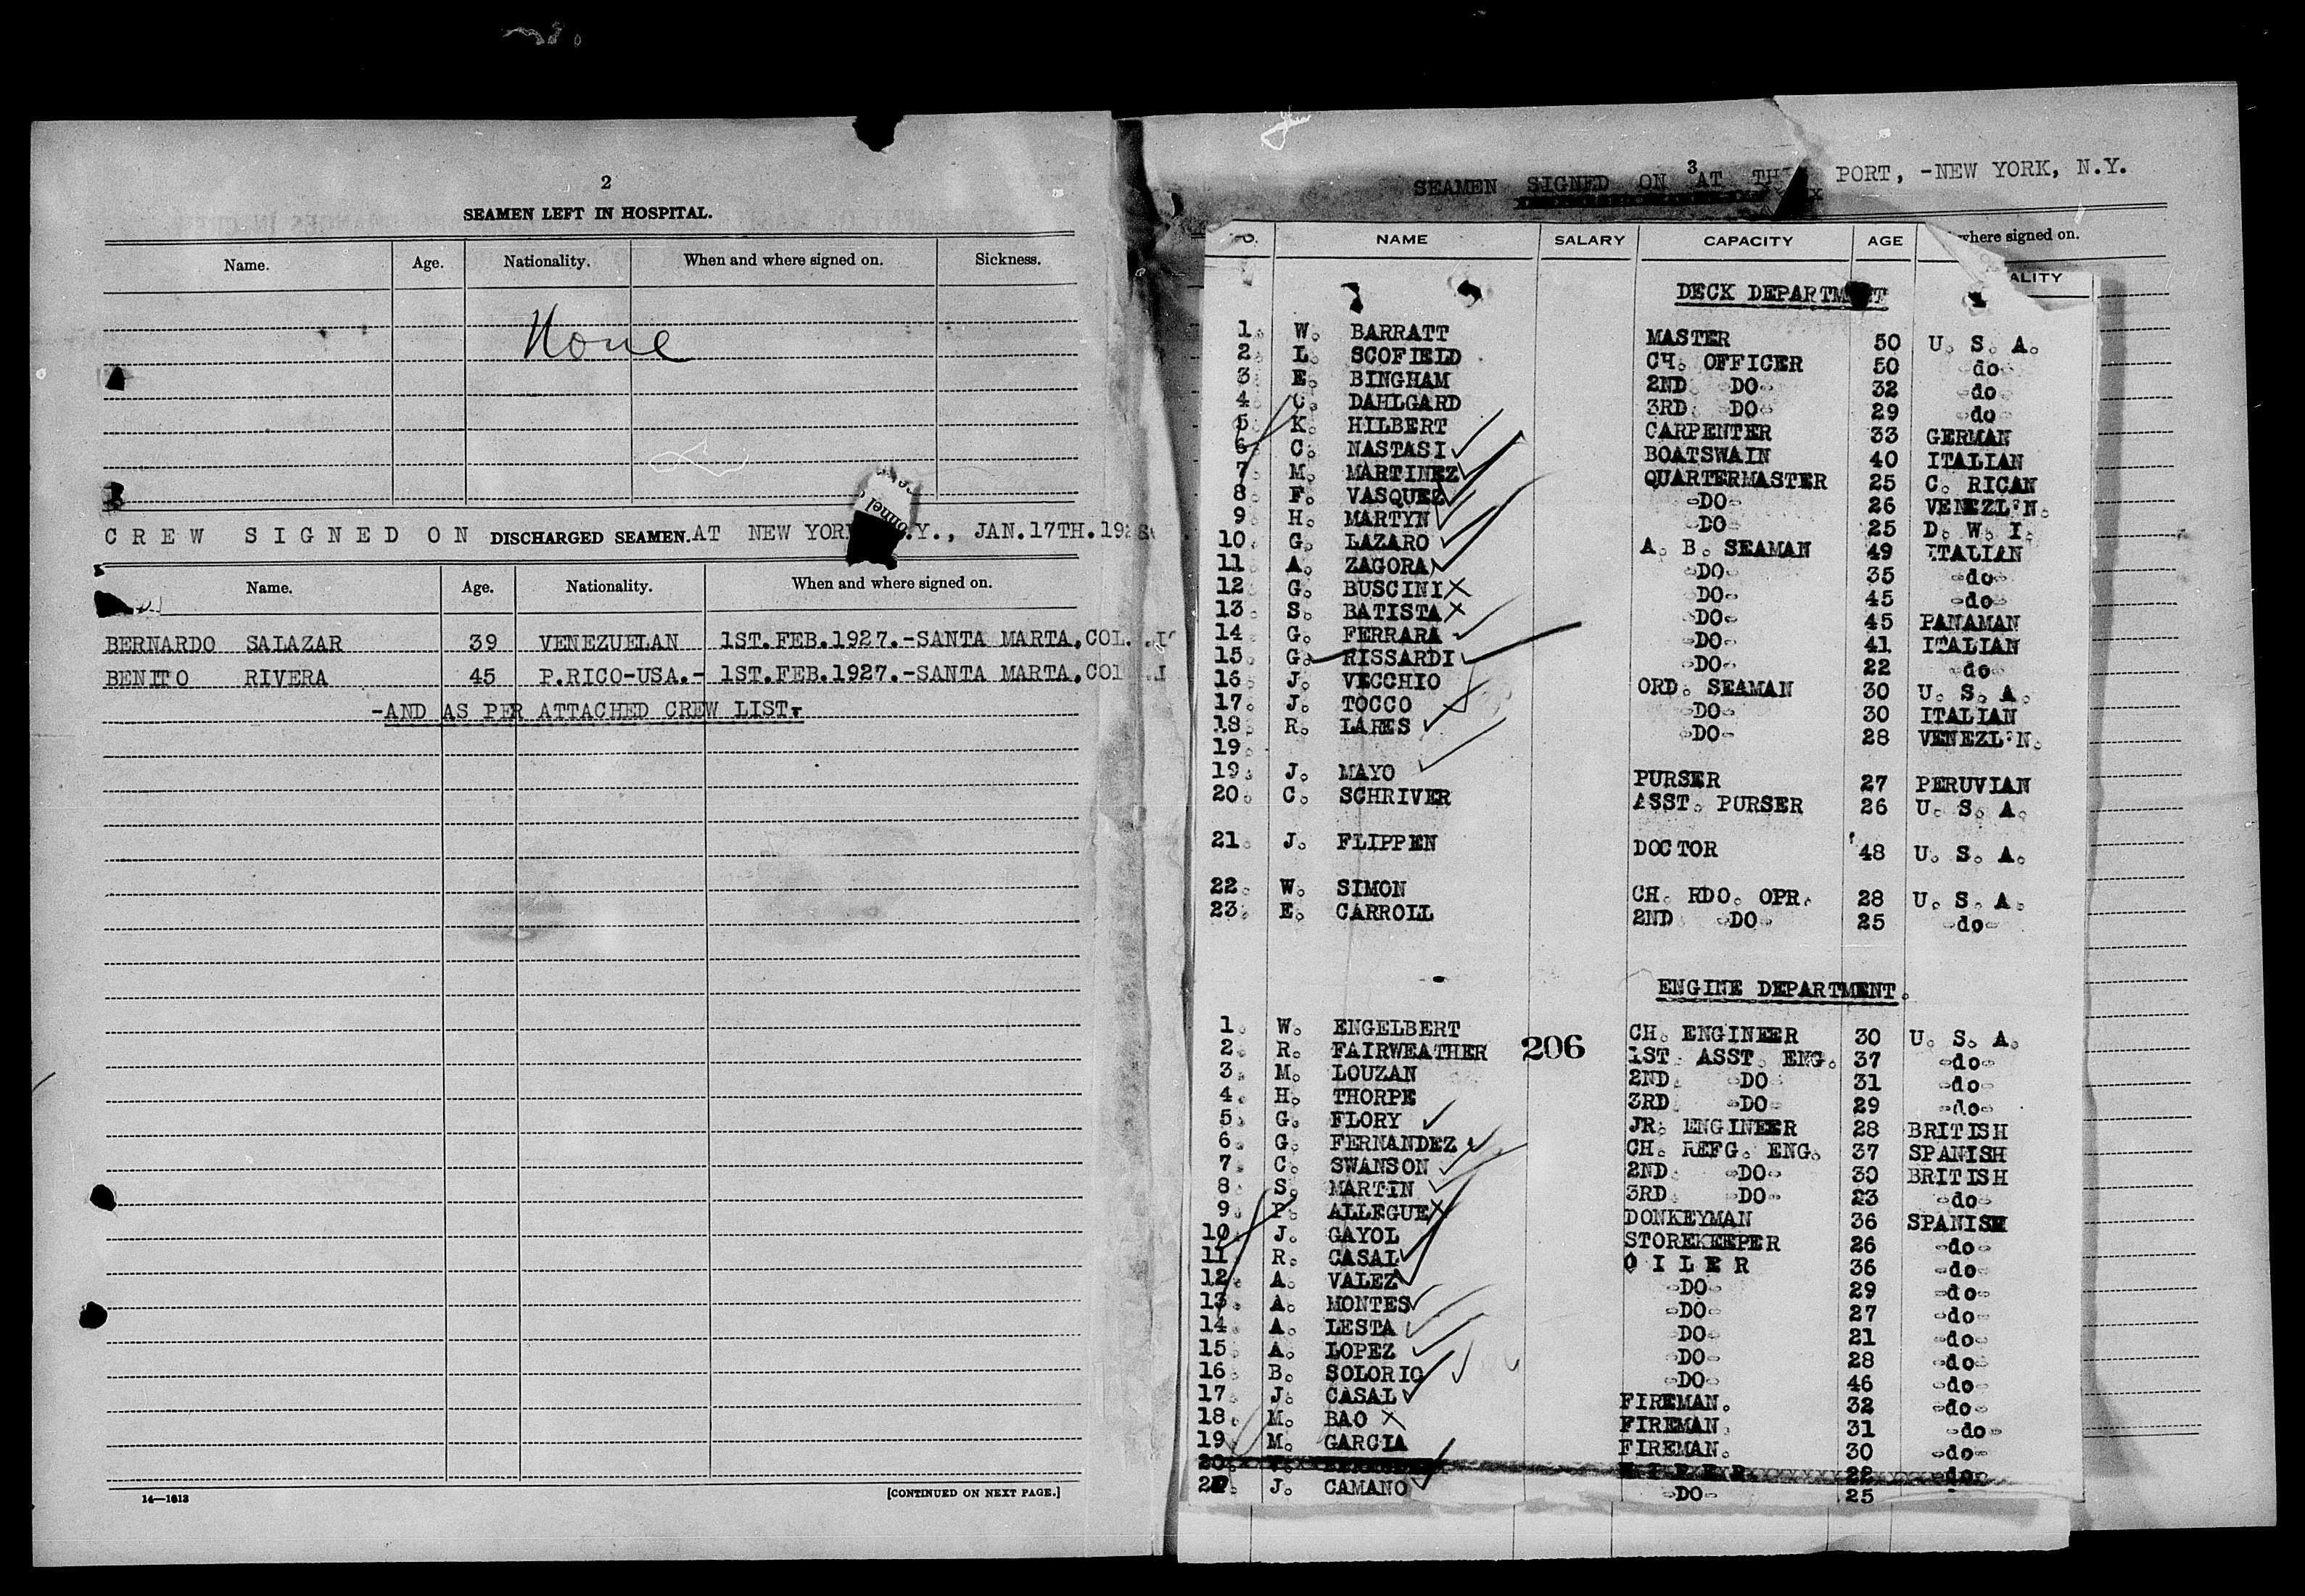 2
SEAMEN LEFT IN HOSPITAL.
Name. Age. Nationality. When and where signed on. Sickness.
None
CREW SIGNED ON DISCHARGED SEAMEN. AT NEW YOR .Y., JAN.17TH.192
Name. Age. Nationality. When and where signed on.
BERNARDO SALAZAR 39 VENEZUELAN 1ST.FEB.1927.-SANTA MARTA.COL.
BENITO RIVERA 45 P.RICO-USA.- 1ST.FEB.1927.-SANTA MARTA.COL
-AND AS PER ATTACHED CREW LIST.
14—1613
[CONTINUED ON NEXT PAGE.]
3
SEAMEN SIGNED ON AT TH PORT, -NEW YORK, N.Y.
where signed on.
NAME SALARY CAPACITY AGE ALITY
DECK DEPARTMENT
1. W. BARRATT MASTER 50 U. S. A.
2. L. SCOFIELD CH. OFFICER 50 -do-
3. E. BINGHAM 2ND -DO- 32 -do-
4. C. DAHLGARD 3RD -DO- 29 -do-
5. K. HILBERT CARPENTER 33 GERMAN
6. C. NASTASI BOATSWAIN 40 ITALIAN
7. M. MARTINEZ QUARTERMASTER 25 C. RICAN
8. F. VASQUEZ -DO- 26 VENEZL'N.
9. H. MARTYN -DO- 25 D. W. I.
10. G. LAZARO A. B. SEAMAN 49 ITALIAN
11. A. ZAGORA -DO- 35 -do-
12. G. BUSCINI -DO- 45 -do-
13. S. BATISTA -DO- 45 PANAMAN
14. G. FERRARA -DO- 41 ITALIAN
15. G. RISSARDI -DO- 22 -do-
16. J. VECCHIO ORD. SEAMAN 30 U. S. A.
17. J. TOCCO -DO- 30 ITALIAN
18. R. LARES -DO- 28 VENEZL'N.
19.
19. J. MAYO PURSER 27 PERUVIAN
20. C. SCHRIVER ASST. PURSER 26 U. S. A.
21. J. FLIPPEN DOCTOR 48 U. S. A.
22. W. SIMON CH. RDO. OPR. 28 U. S. A.
23. E. CARROLL 2ND -DO- 25 -do-
ENGINE DEPARTMENT.
1. W. ENGELBERT CH. ENGINEER 30 U. S. A.
2. R. FAIRWEATHER 206 1ST ASST. ENG. 37 -do-
3. M. LOUZAN 2ND. -DO- 31 -do-
4. H. THORPE 3RD. -DO- 29 -do-
5. G. FLORY JR. ENGINEER 28 BRITISH
6. G. FERNANDEZ CH. REFG. ENG. 37 SPANISH
7. C. SWANSON 2ND. -DO- 30 BRITISH
8. S. MARTIN 3RD -DO- 23 -do-
9. P. ALLEGUE DONKEYMAN 36 SPANISH
10. J. GAYOL STOREKEEPER 26 -do-
11. R. CASAL O I L E R 36 -do-
12. A. VALEZ -DO- 29 -do-
13. A. MONTES -DO- 27 -do-
14. A. LESTA -DO- 21 -do-
15. A. LOPEZ -DO- 28 -do-
16. B. SOLORIO -DO- 46 -do-
17. J. CASAL FIREMAN. 32 -do-
18. M. BAO FIREMAN. 31 -do-
19. M. GARCIA FIREMAN. 30 -do-
20. 22 -do-
J. CAMANO -DO- 25